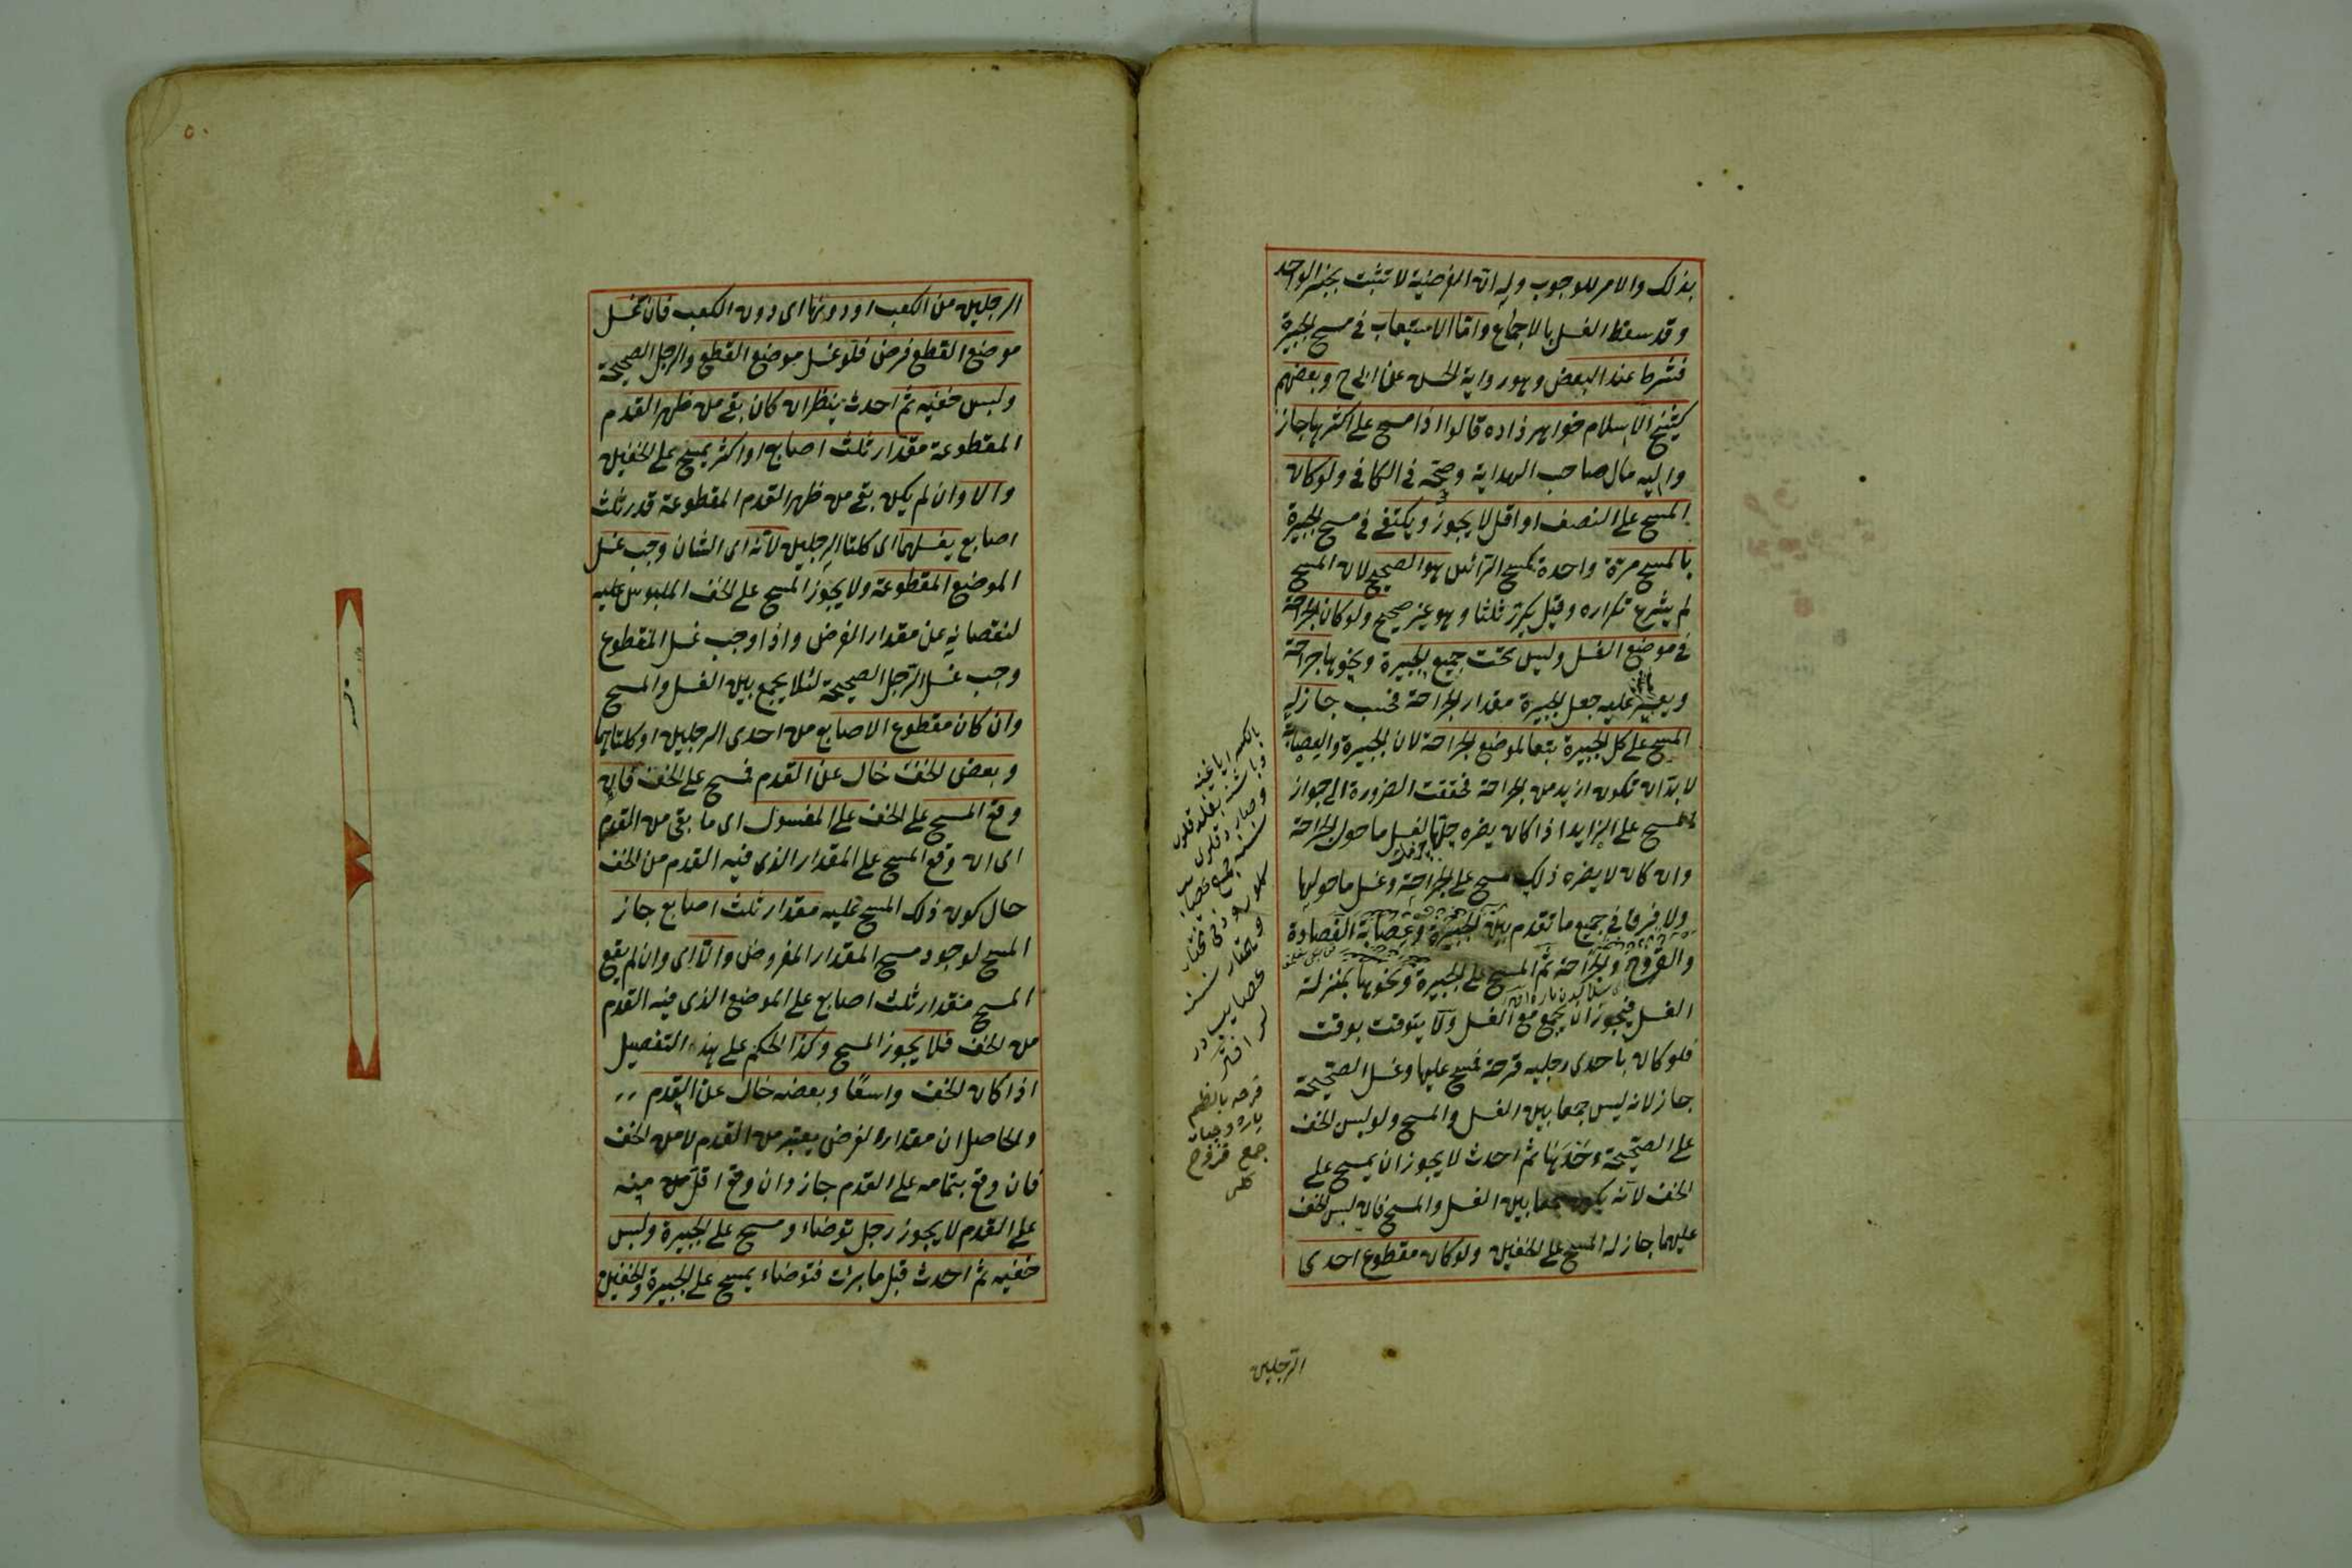 بذلك والامر للوجوب وله ان الفرضية لا تثبت بخبر الواحد
وقد سقط الغسل بالاجماع واما الاستيعاب في مسح الجبيرة
فشرط عند البعض وهو رواية الحسن عن ابى ح وبعضهم
كشيخ الاسلام خواهر زاده قالوا اذا مسح على اكثرها جاز
واليه مال صاحب الهداية وصححه في الكافى ولو كان
المسح على النصف او اقل لا يجوز ويكتفى في مسح الجبيرة
بالمسح مرة واحدة كمسح الرأس هو الصحيح لان المسح
لم يشرع تكراره وقيل يكرر ثلثا وهو غير صحيح ولو كان الجراحة
في موضع الغسل وليس تحت جميع الجبيرة ونحوها جراحة
ويعسر عليه جعل الجبيرة مقدار الجراحة فحسب جاز له
المسح على كل الجبيرة تبعا لموضع الجراحة لان الجبيرة والعصابة
لا بد ان تكون ازيد من الجراحة فحققت الضرورة الى جواز
المسح على الزايد اذا كان يضره حلها لغسل ما حول الجراحة
وان كان لا يضره ذلك مسح على الجراحة وغسل ما حولها
ولا فرق في جميع ما تقدم بين الجبيرة وعصابة الفصادة
والقروح والجراحة ثم المسح على الجبيرة ونحوها بمنزلة
الغسل فيجوز ان يجمع مع الغسل ولا يتوقت بوقت
فلو كان باحدى رجليه قرحة فمسح عليها وغسل الصحيحة
جاز لانه ليس جمعا بين الغسل والمسح ولو لبس الخف
على الصحيحة وحدها ثم احدث لا يجوز ان يمسح على
الخف لانه يكون جمعا بين الغسل والمسح فان لبس الخف
عليهما جاز له المسح على الخفين ولو كان مقطوع احدى
الرجلين
الرجلين من الكعب او دونها اى دون الكعب فان غسل
موضع القطع فرض فلو غسل موضع القطع والرجل الصحيحة
ولبس خفيه ثم احدث ينظر ان كان بقى من ظهر القدم
المقطوعة مقدار ثلث اصابع او اكثر يمسح على الخفين
والا وان لم يكن بقى من ظهر القدم المقطوعة قدر ثلث
اصابع يغسلهما اى كلتا الرجلين لانه اى الشان وجب غسل
الموضع المقطوعة ولا يجوز المسح على الخف الملبوس عليه
لنقصانه عن مقدار الفرض واذا وجب غسل المقطوع
وجب غسل الرجل الصحيحة لئلا يجمع بين الغسل والمسح
وان كان مقطوع الاصابع من احدى الرجلين او كلتاهما
وبعض الخف خال عن القدم فمسح على الخف فان
وقع المسح على الخف على المغسول اى ما بقى من القدم
اى ان وقع المسح على المقدار الذى فيه القدم من الخف
حال كون ذلك المسح عليه مقدار ثلث اصابع جاز
المسح لوجود مسح المقدار المفروض والا اى وان لم يقع
المسح مقدار ثلث اصابع على الموضع الذى فيه القدم
من الخف فلا يجوز المسح وكذا الحكم على هذا التفصيل
اذا كان الخف واسعا وبعضه خال عن القدم
والحاصل ان مقدار الفرض يعتبر من القدم لا من الخف
فان وقع بتمامه على القدم جاز وان وقع اقل من منه
على القدم لا يجوز رجل توضاء ومسح على الجبيرة ولبس
خفيه ثم احدث قبل ما برئت فتوضاء يمسح على الجبيرة والخفين